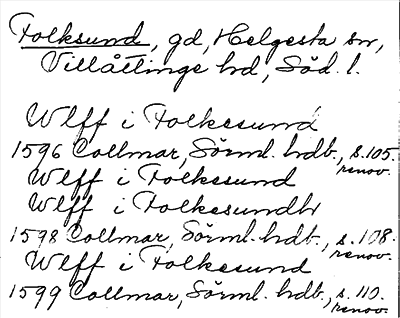 Folksund, gd, Helgesta sn,
Villåttinge hd, Söd. l.
Wlff i Folkesund
1596 Collmar, Sörml. hdb., s. 105.
renov.
Wlff i Folkesund
Wlff i Folkesundh
1598 Collmar, Sörml. hdb., s. 108.
renov.
Wlff i Folkesund
1599 Collmar, Sörml. hdb., s. 110.
renov.